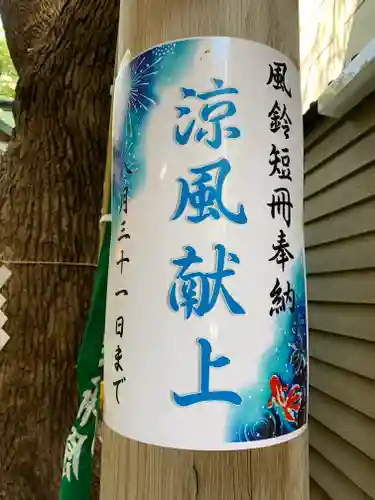 風鈴短冊奉納
涼風献上
月三十一日まで